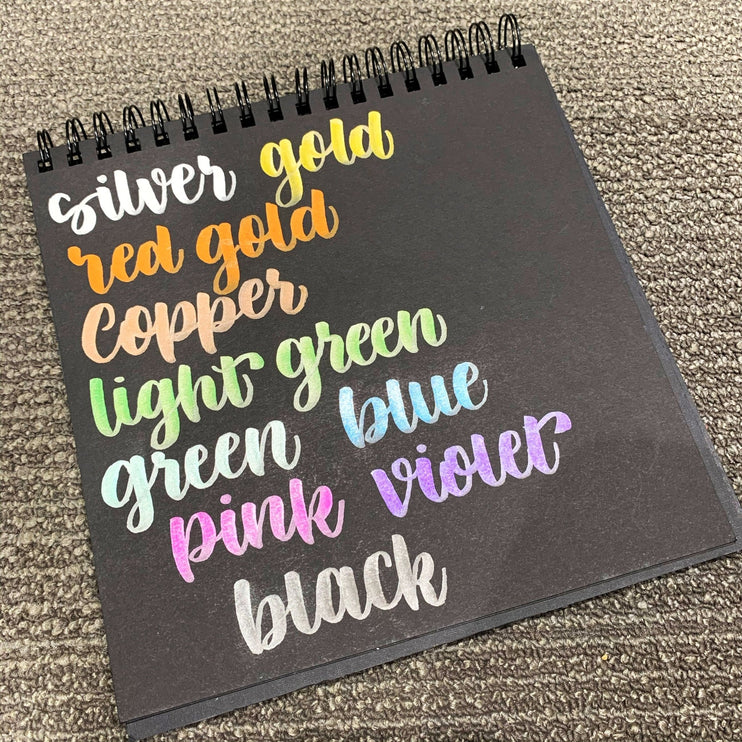 silver gold
red gold
Copper
light green
green blue
pink violet
black